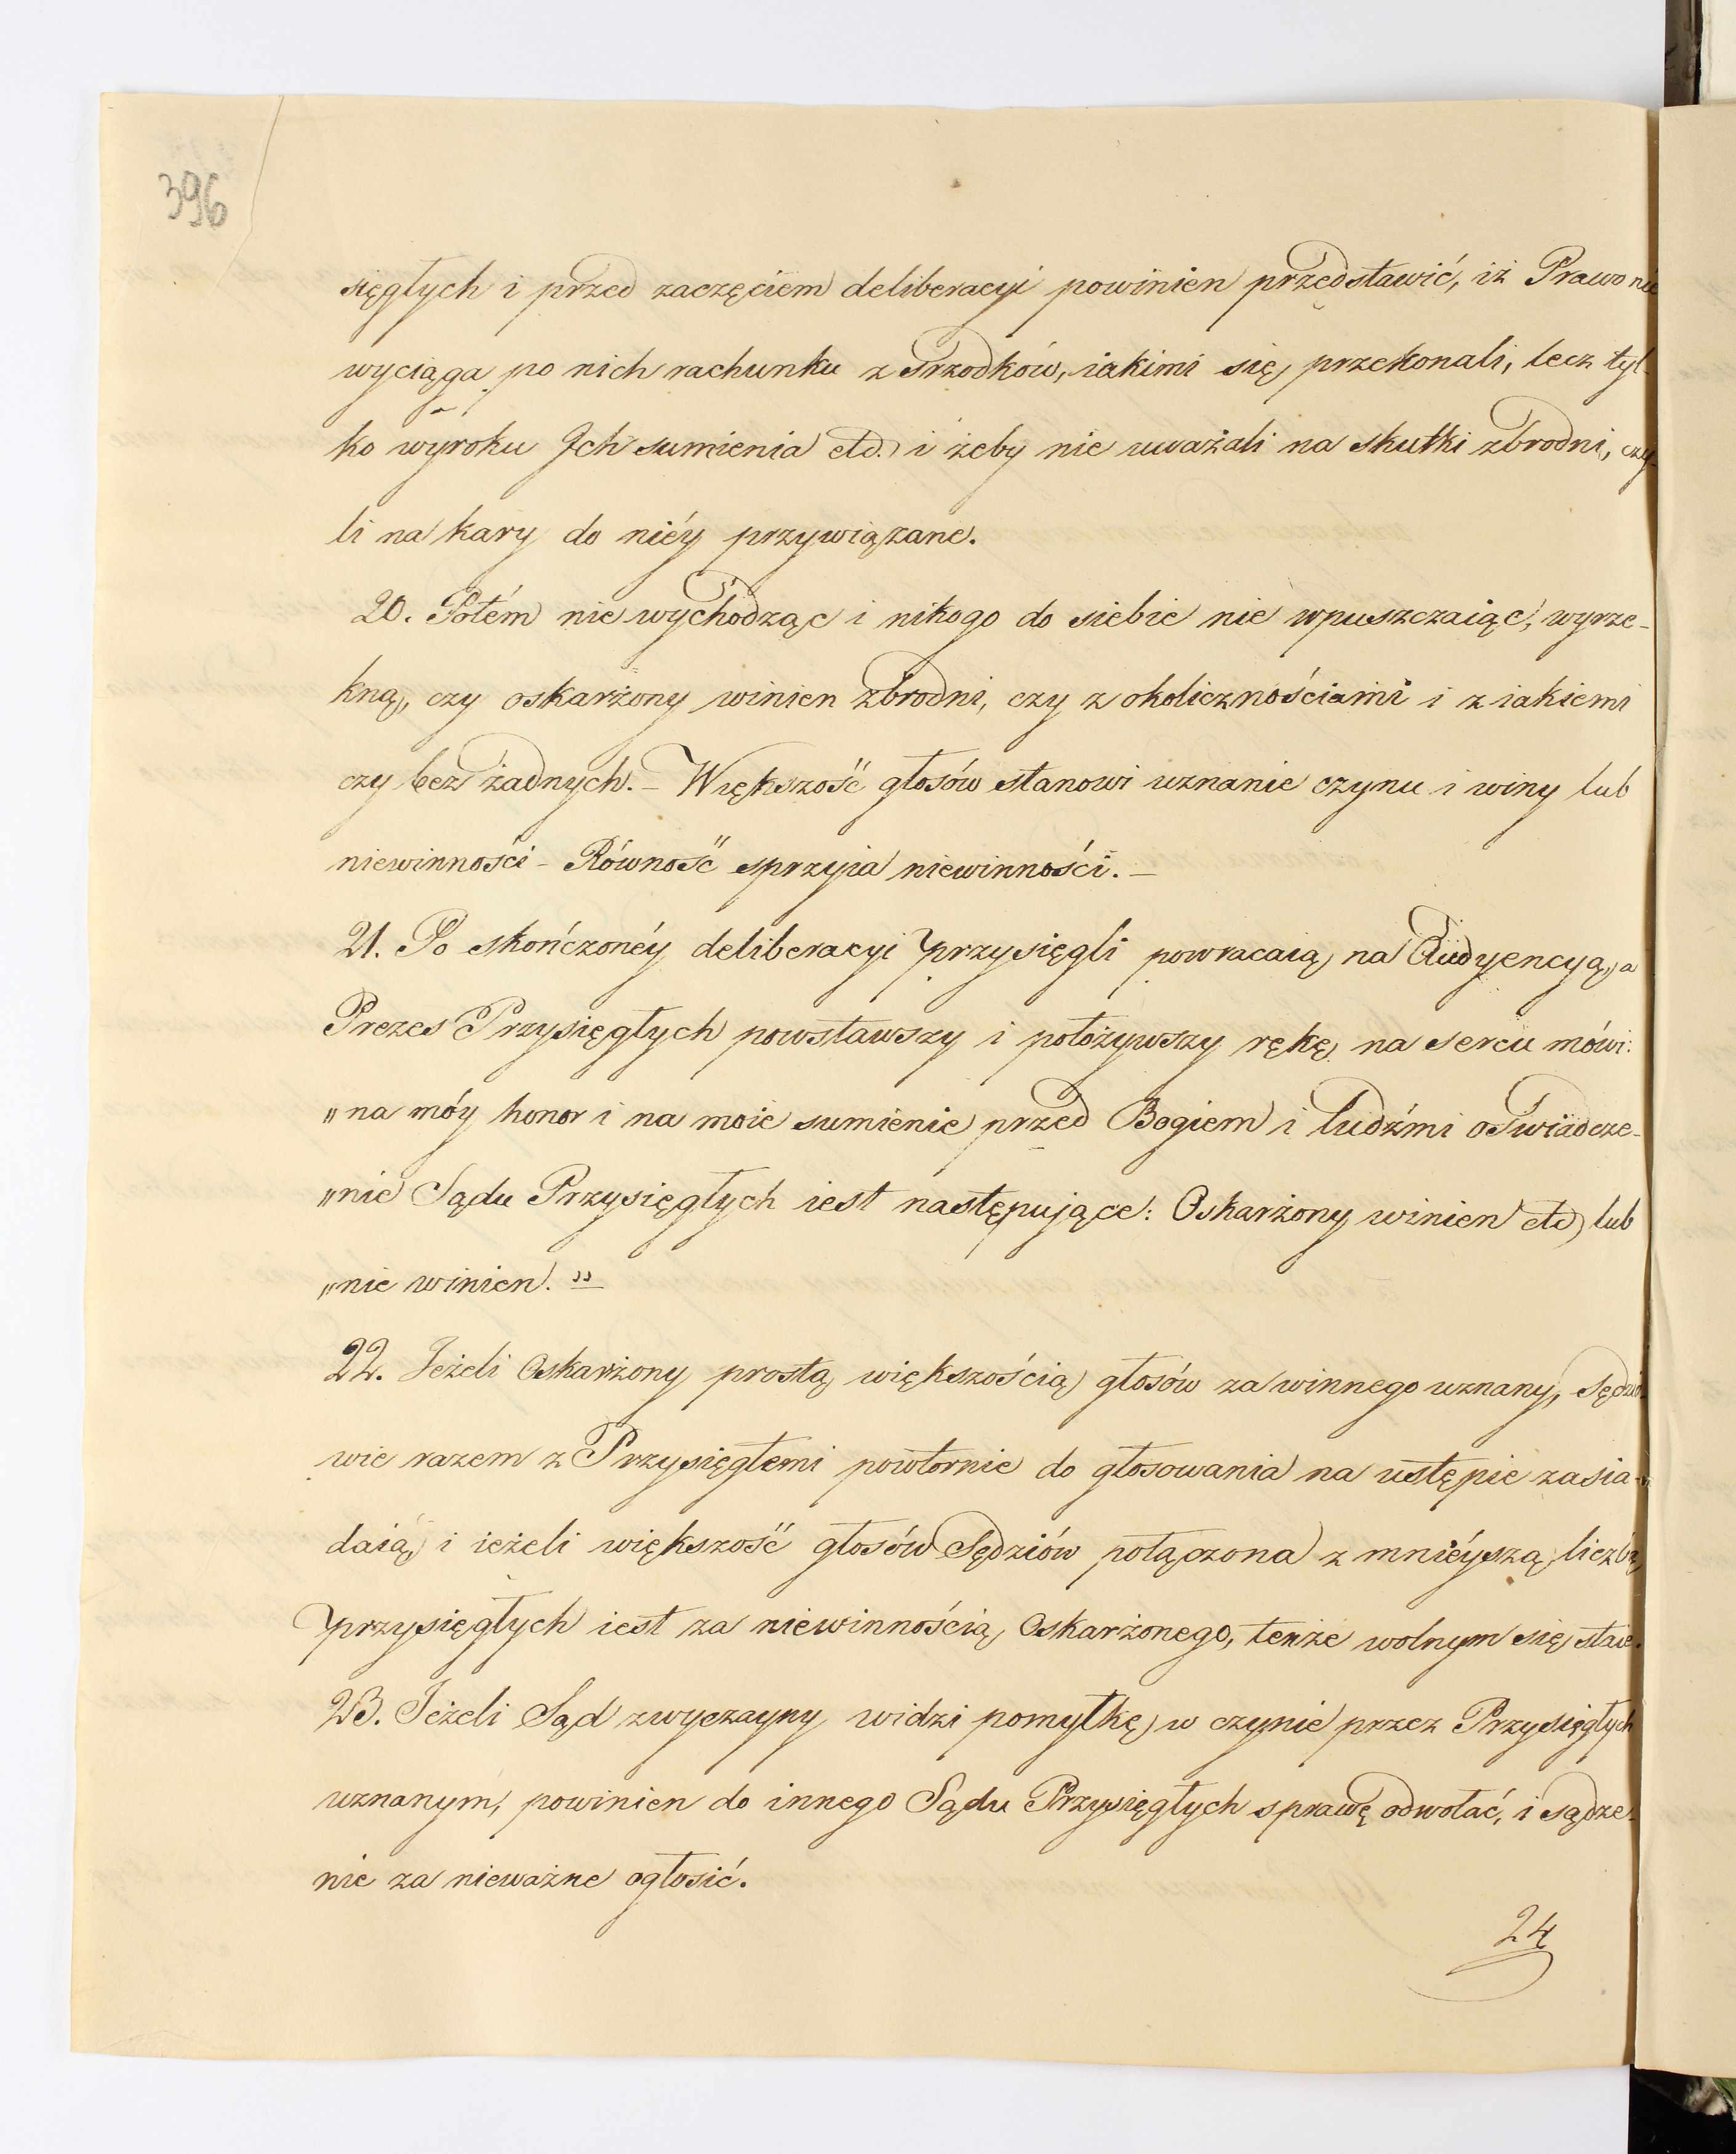 396
sięgłych i przed zaczęciem deliberacyi powinien przedstawić, iż Prawo nie
wyciąga po nich rachunku z śrzodków, iakimi się przekonali, lecz tyl-
ko wyroku Ich sumienia etc. i żeby nie uważali na skutki zbrodni, czy-
li na kary do niéy przywiązane.
20. Potém nie wychodząc i nikogo do siebie nie wpuszczaiąc, wyrze-
kną, czy oskarżony winien zbrodni, czy z okolicznościami i z iakiemi
czy bez żadnych. – Większość głosów stanowi uznanie czynu i winy lub
niewinności – Równość sprzyia niewinności. –
21. Po skończonéy deliberacyi przysięgli powracaią na Audyencyą, a
Prezes Przysięgłych powstawszy i położywszy rękę na sercu mówi:
„na móy honor i na moie sumienie przed Bogiem i ludźmi oświadcze-
„nie Sądu Przysięgłych iest następujące: Oskarżony winien etc lub
„nie winien. "
22. Jeżeli Oskarżony prostą większością głosów za winnego uznany, Sędzio-
wie razem z Przysięgłemi powtornie do głosowania na ustępie zasia-
daią, i ieżeli większość głosów Sędziów połączona z mniéyszą liczbą
przysięgłych iest za niewinnością Oskarżonego, tenże wolnym się staie.
23. Jeżeli Sąd zwyczayny widzi pomyłkę w czynie przez Przysięgłych
uznanym, powinien do innego Sądu Przysięgłych sprawę odwołać, i sądze-
nie za nieważne ogłosić.
24